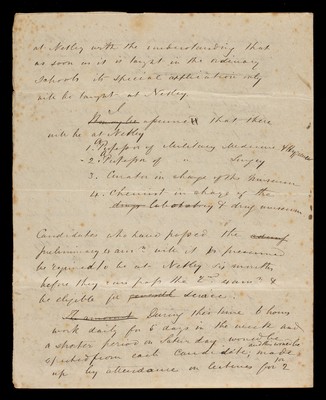 at Netley with the understanding that
as soon as it is taught in the ordinary
Schools its special application only
will be taught at Netley.
I
presume that there
will be at Netley
1. Professor of Military Medicine & Hygiene
2. Professor of " Surgery
3. Curator in charge of the Museum
4. Chemist in charge of the
drugs Laboratory & drug museum
Candidates who have passed the
preliminary exam: will it is presumed
be required to be at Netley six months
before they can pass the 2nd exam: &
be eligible for service.
The amount During this time 6 hours
work daily for 5 days in the week and
a shorter period on Saturday would be
required from each candidate, made
up by attendance on lectures for 2